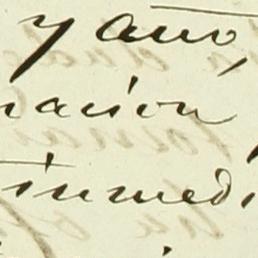 y año,
nacion
inmedi